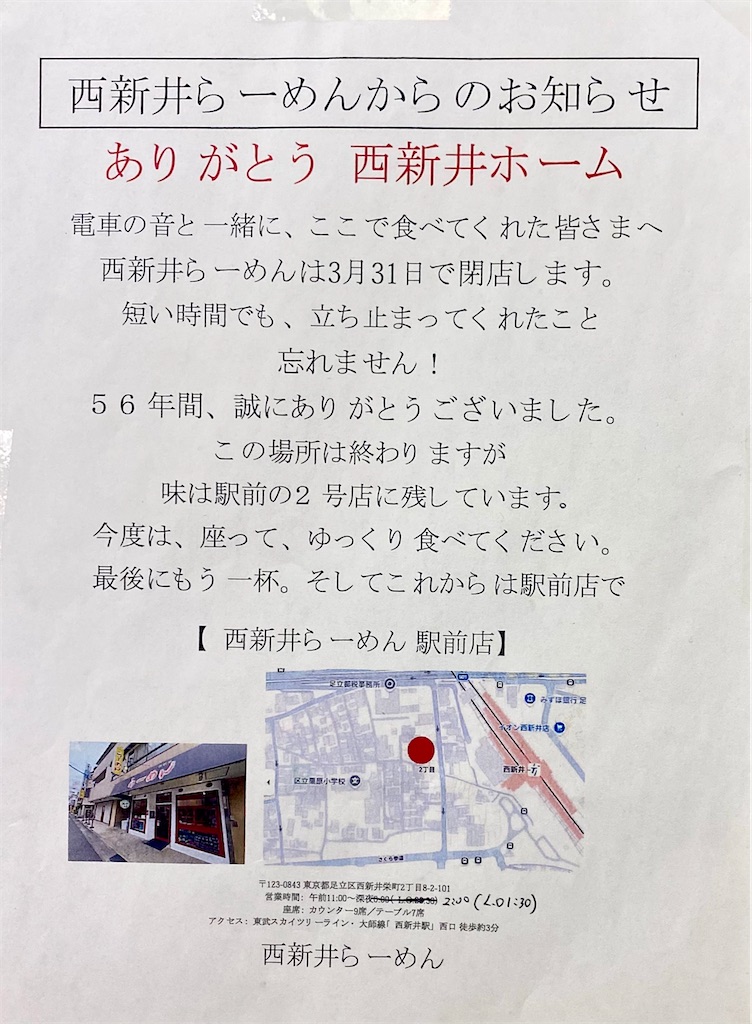 西新井らーめんからのお知らせ
ありがとう 西新井ホーム
電車の音と一緒に、ここで食べてくれた皆さまへ
西新井らーめんは3月31日で閉店します。
短い時間でも、立ち止まってくれたこと
忘れません！
５６年間、誠にありがとうございました。
この場所は終わりますが
味は駅前の２号店に残しています。
今度は、座って、ゆっくり食べてください。
最後にもう一杯。そしてこれからは駅前店で
【 西新井らーめん 駅前店】
足立都税事務所
みずほ銀行 足
イオン西新井店
2丁目
西新井
区立栗原小学校
さくら参道
〒123-0843 東京都足立区西新井栄町2丁目8-2-101
営業時間：午前11:00～深夜0:00( L.O. 23:30) 2:00 (L.O1:30)
座席：カウンター9席／テーブル7席
アクセス：東武スカイツリーライン・大師線「西新井駅」西口 徒歩約3分
西新井らーめん